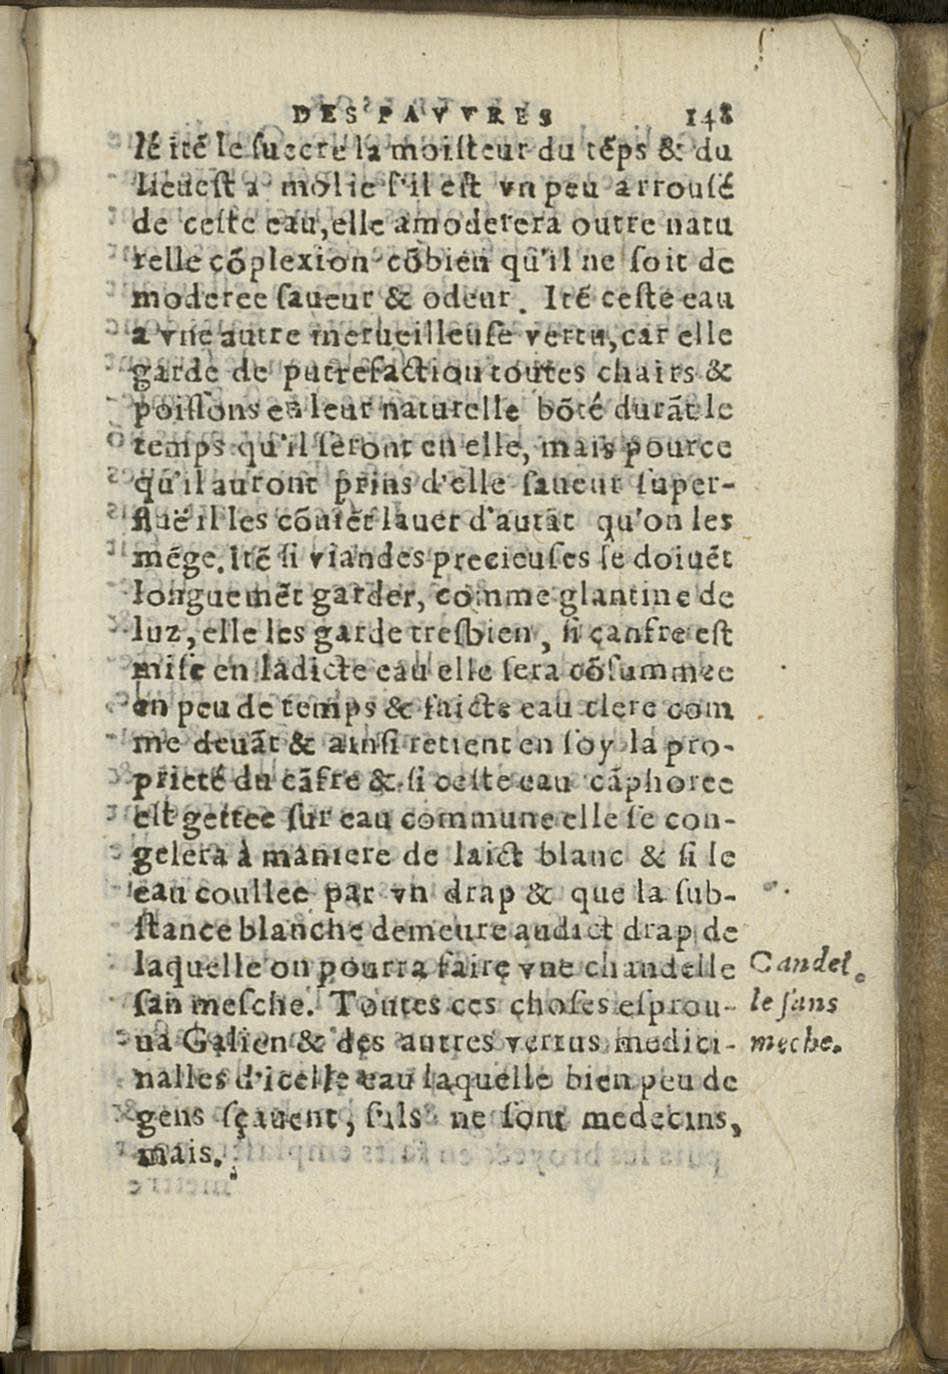 DES PAVVRES 148
lé itē le succre la moisteur du tēps & du
lieuest a molie s'il est vn peu arrousé
de ceste eau, elle amoderera outre natu
relle cōplexion cōbien qu'il ne soit de
moderee saueur & odeur. Itē ceste eau
a vne autre merueilleuse vertu, car elle
garde de putrefaction toutes chairs &
poissons en leur naturelle bōté durāt le
temps qu'il seront en elle, mais pource
qu'il auront prins d'elle saueur super-
fluë il les cōuiēt lauer d'autāt qu'on les
mēge. Itē si viandes precieuses se doiuēt
longuemēt garder, comme glantine de
luz, elle les garde tresbien, si çanfre est
mise en ladicte eau elle sera cōsummee
en peu de temps & faicte eau clere com
me deuāt & ainsi retient en soy la pro-
prieté du cāfre & si ceste eau cāphoree
est gettee sur eau commune elle se con-
gelera à maniere de laict blanc & si le
eau coullee par vn drap & que la sub-
stance blanche demeure audict drap de
laquelle on pourra faire vne chandelle
san mesche. Toutes ces choses esprou-
ua Galien & des autres vertus medici-
nalles d'icelle eau laquelle bien peu de
gens sçauent, s'ils ne sont medecins,
mais.
Candel
le sans
meche.